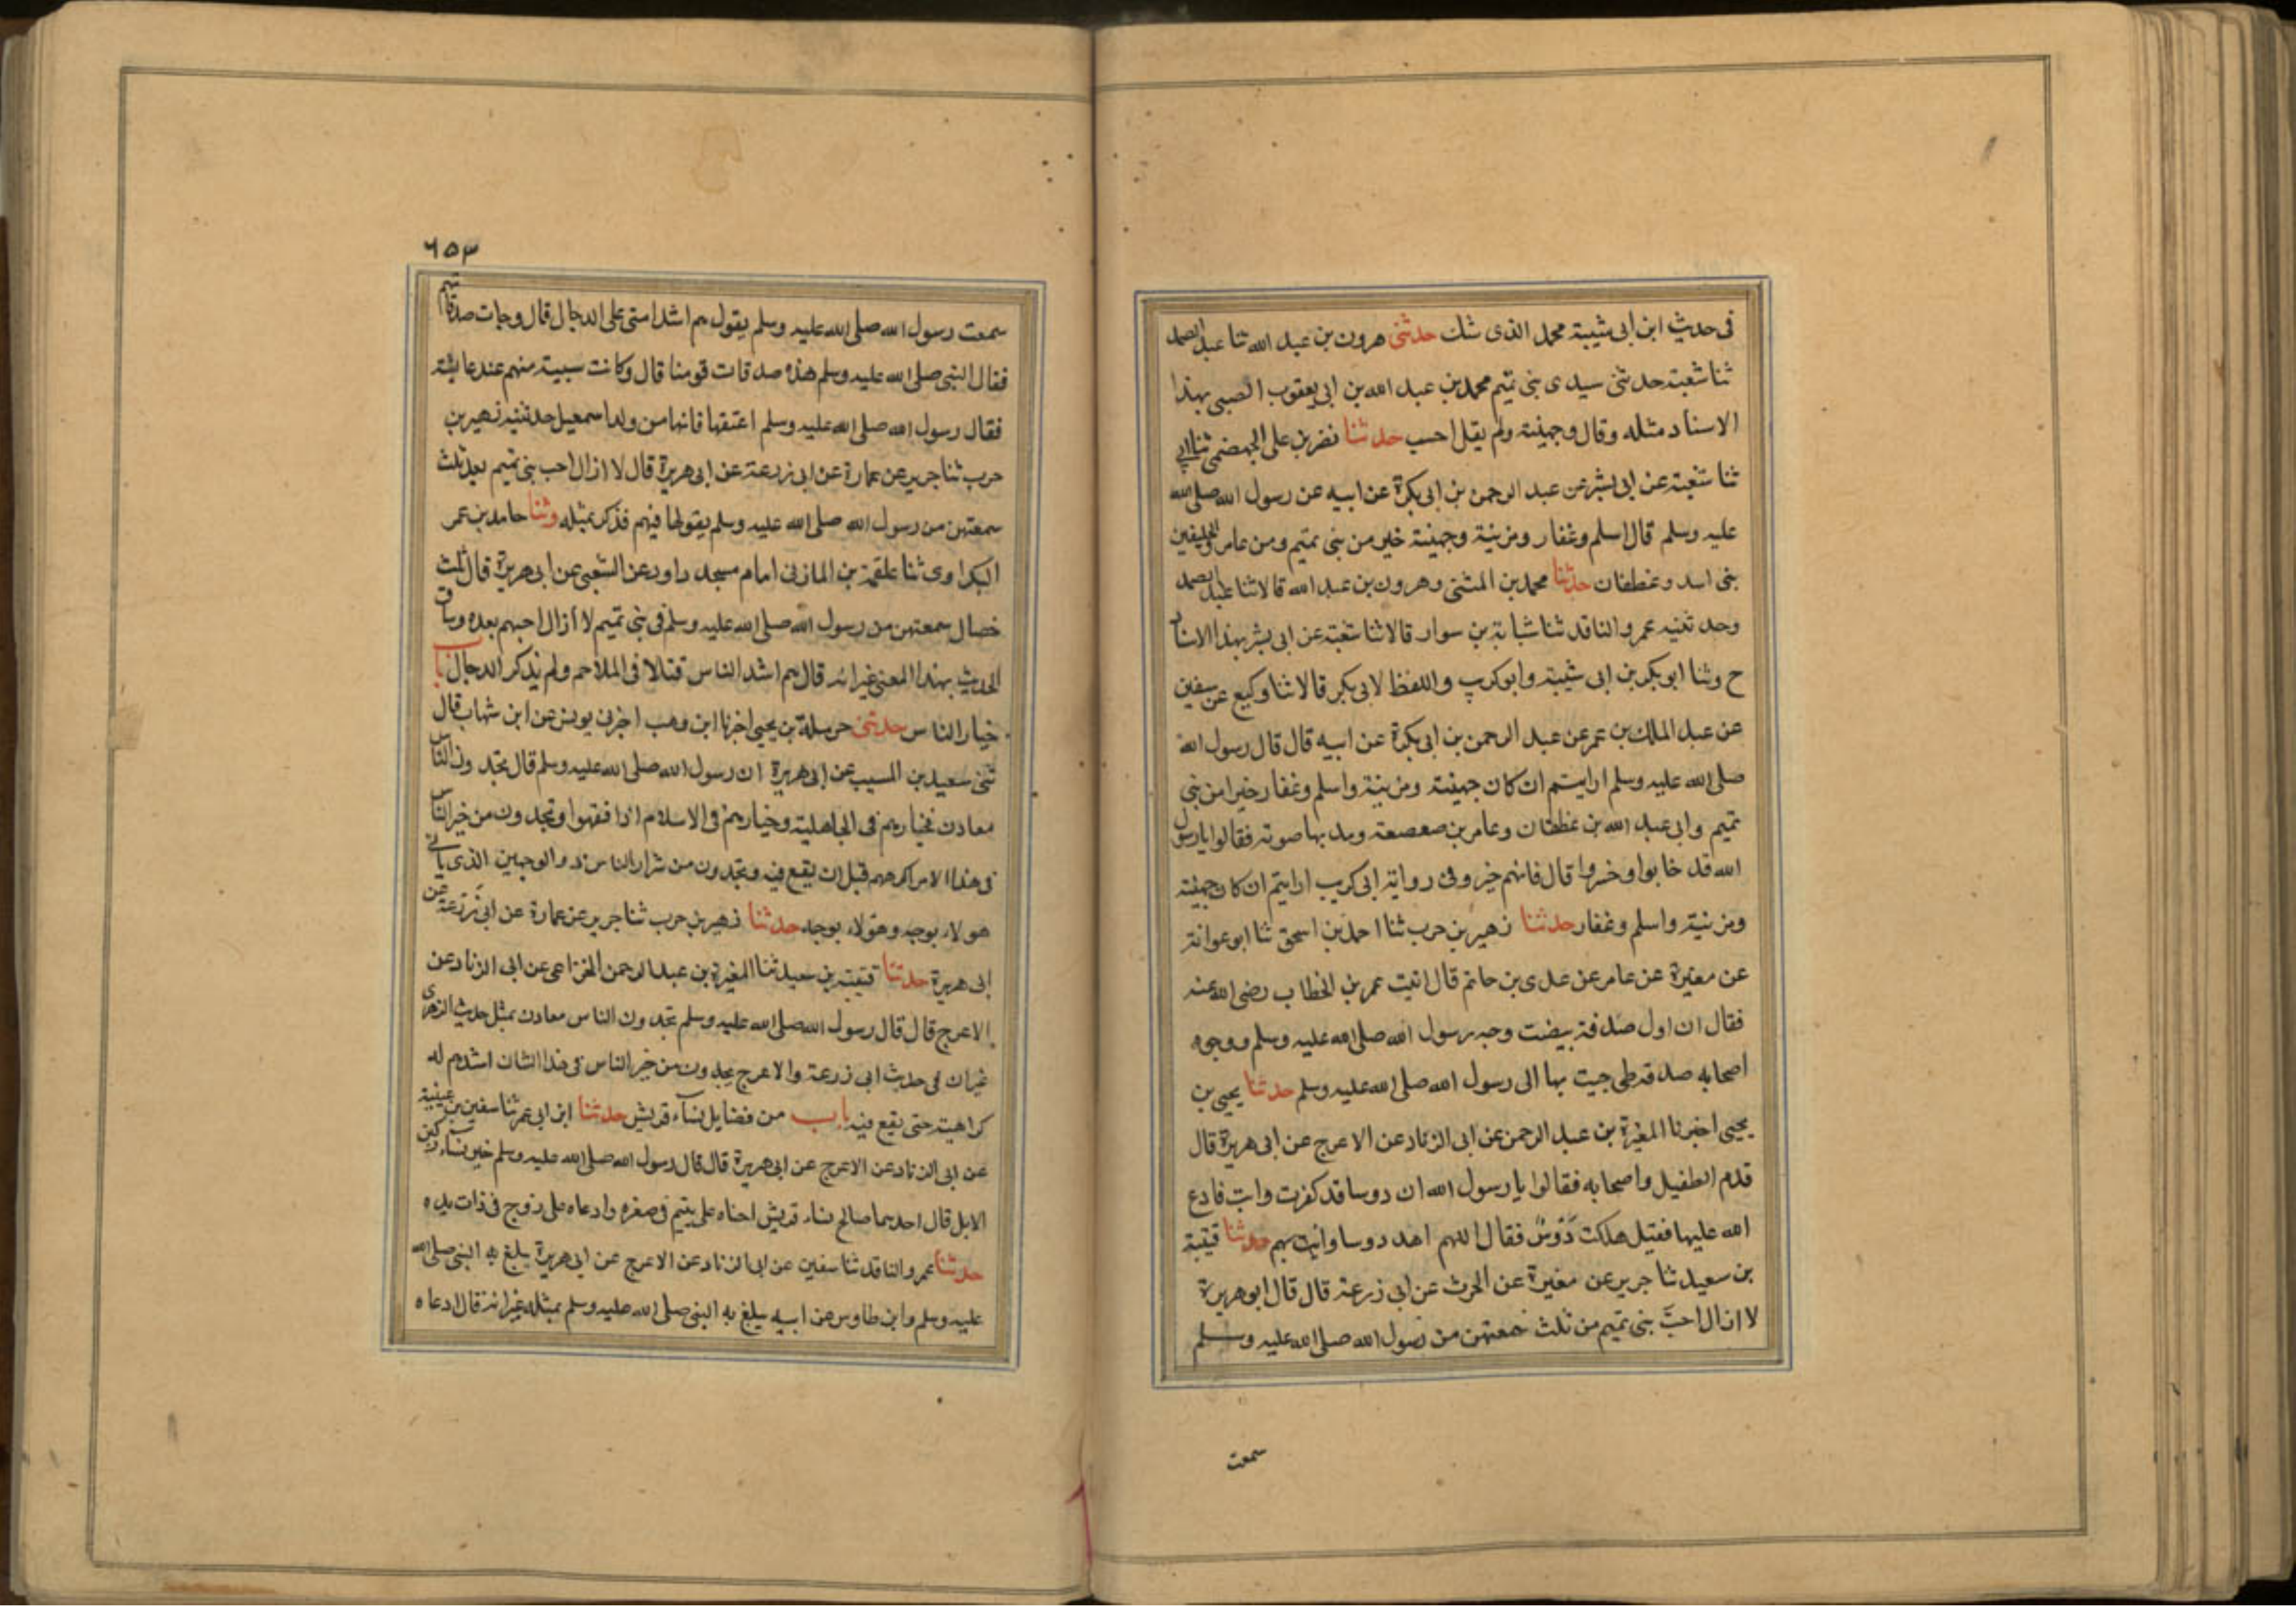 فى حديث ابن ابى شيبة محمد الذى شك حدثنى هرون بن عبد الله ثنا عبد الصمد
ثنا شعبة حدثنى سيدى بنى تميم محمد بن عبد الله بن ابى يعقوب الضبى بهذا
الاسناد مثله وقال وجهينة ولم يقل احسب حدثنا نضر بن على الجهضمى ثنا ابى
ثنا شعبة عن ابى بشر عن عبد الرحمن بن ابى بكرة عن ابيه عن رسول الله صلى الله
عليه وسلم قال اسلم وغفار ومزينة وجهينة خير من بنى تميم ومن عامر والحليفين
بنى اسد وغطفان حدثنا محمد بن المثنى وهرون بن عبد الله قالا ثنا عبد الصمد
وحدثنيه عمرو الناقد ثنا شبابة بن سوار قالا ثنا شعبة عن ابى بشر بهذا الاسناد
ح وثنا ابو بكر بن ابى شيبة وابو كريب واللفظ لابى بكر قالا ثنا وكيع عن سفين
عن عبد الملك بن عمر عن عبد الرحمن بن ابى بكرة عن ابيه قال قال رسول الله
صلى الله عليه وسلم ارايتم ان كان جهينة ومزينة واسلم وغفار خيرا من بنى
تميم وابى عبد الله بن غطفان وعامر بن صعصعة ومد بها صوته فقالوا يا رسول
الله قد خابوا وخسروا قال فانهم خير وفى رواية ابى كريب ارايتم ان كان جهينة
ومزينة واسلم وغفار حدثنا زهير بن حرب ثنا احمد بن اسحق ثنا ابو عوانة
عن مغيرة عن عامر عن عدى بن حاتم قال اتيت عمر بن الخطاب رضى الله عنه
فقال ان اول صدقة بيضت وجه رسول الله صلى الله عليه وسلم ووجوه
اصحابه صدقة طى جيت بها الى رسول الله صلى الله عليه وسلم حدثنا يحيى بن
يحيى اخبرنا المغيرة بن عبد الرحمن عن ابى الزناد عن الاعرج عن ابى هريرة قال
قدم الطفيل واصحابه فقالوا يا رسول الله ان دوسا قد كفرت وابت فادع
الله عليها فقيل هلكت دَوسٌ فقال اللهم اهد دوسا وايت بهم حدثنا قتيبة
بن سعيد ثنا جرير عن مغيرة عن الحرث عن ابى زرعة قال قال ابو هريرة
لا ازال احبّ بنى تميم من ثلث سمعتهن من رسول الله صلى الله عليه وسلم
سمعت
٦٥٣
سمعت رسول الله صلى الله عليه وسلم يقول هم اشد امتى على الدجال قال وجات صدقاتهم
فقال النبى صلى الله عليه وسلم هذه صدقات قومنا قال وكانت سبية منهم عند عايشة
فقال رسول الله صلى الله عليه وسلم اعتقها فانها من ولد اسمعيل حدثنيه زهير بن
حرب ثنا جرير عن عمارة عن ابى زرعة عن ابى هريرة قال لا ازال احب بنى تميم بعد ثلث
سمعتهن من رسول الله صلى الله عليه وسلم يقولها فيهم فذكر بمثله وثنا حامد بن عمر
البكراوى ثنا علقمة بن المازنى امام مسجد داود عن الشعبى عن ابى هريرة قال ثلث
خصال سمعتهن من رسول الله صلى الله عليه وسلم فى بنى تميم لا ازال احبهم بعده وساق
الحديث بهذا المعنى غير انه قال هم اشد الناس قتلا فى الملاحم ولم يذكر الدجال باب
خيار الناس حدثنى حرملة بن يحيى اخبرنا ابن وهب اخبرنى يونس عن ابن شهاب قال
ثنى سعيد بن المسيب عن ابى هريرة ان رسول الله صلى الله عليه وسلم قال تجدون الناس
معادن فخيارهم فى الجاهلية وخيارهم فى الاسلام اذا فقهوا وتجدون من خير الناس
فى هذا الامر اكرههم قبل ان يقع فيه وتجدون من شرار الناس ذو الوجهين الذى ياتى
هولاء بوجه وهولاء بوجه حدثنا زهير بن حرب ثنا جرير عن عمارة عن ابى زرعة عن
ابى هريرة حدثنا قتيبة بن سعيد ثنا المغيرة بن عبد الرحمن الحزامى عن ابى الزناد عن
الاعرج قال قال رسول الله صلى الله عليه وسلم تجدون الناس معادن بمثل حديث الزهرى
غير ان فى حديث ابى زرعة والاعرج تجدون من خير الناس فى هذا الشان اشدهم له
كراهية حتى يقع فيه باب من فضايل نسآء قريش حدثنا ابن ابى عمر ثنا سفين بن عيينة
عن ابى الزناد عن الاعرج عن ابى هريرة قال قال رسول الله صلى الله عليه وسلم خير نساء ركبن
الابل قال احدهما صالح نساء قريش احناه على يتيم فى صغره وادعاه على زوج فى ذات يده
حدثنا عمرو الناقد ثنا سفين عن ابى الزناد عن الاعرج عن ابى هريرة يبلغ به النبى صلى الله
عليه وسلم وابن طاوس عن ابيه يبلغ به النبى صلى الله عليه وسلم بمثله غير انه قال ادعاه